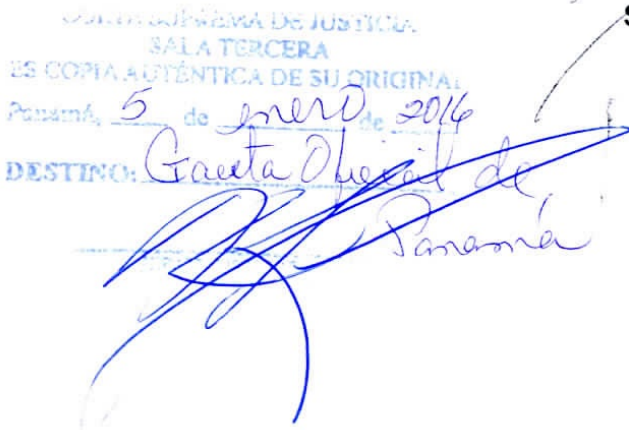 CORTE SUPREMA DE JUSTICIA
SALA TERCERA
ES COPIA AUTÉNTICA DE SU ORIGINAL
Panamá, 5 de enero de 2016
DESTINO: Gaceta Oficial de
Panamá